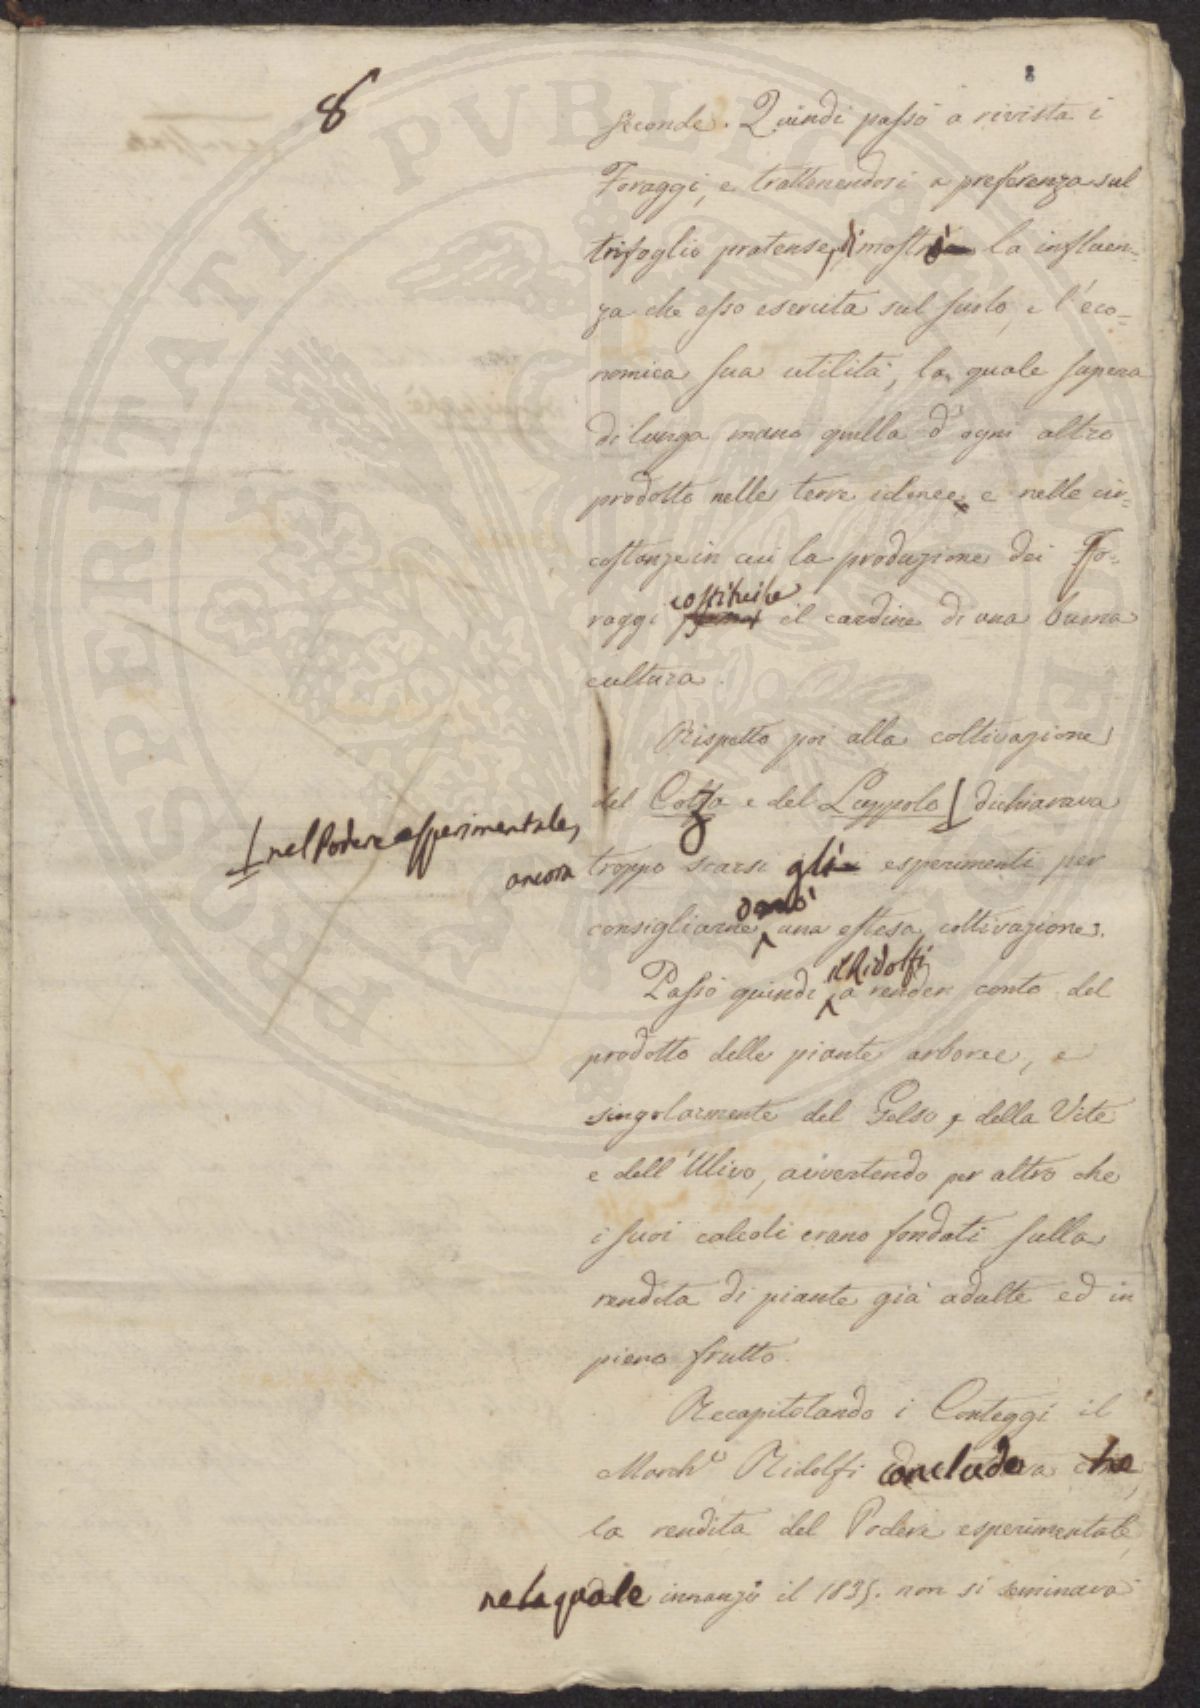 8
8
seconde. Quindi passò a rivista i
Foraggi, e trattenendosi a preferenza sul
trifoglio pratense, dimostrò la influen=
za che esso esercita sul suolo, e l'eco=
nomica sua utilità, la quale supera
di lunga mano quella d'ogni altro
prodotto nelle terre idonee, e nelle cir=
costanze in cui la produzione dei Fo=
costituisce
raggi il cardine di una buona
cultura.
Rispetto poi alla coltivazione
del Colza e del Luppolo dichiarava
nel Podere esperimentale,
ancora
troppo scarsi gli esperimenti per
consigliarne una estesa coltivazione.
il Ridolfi
Passò quindi a render conto del
prodotto delle piante arboree, e
singolarmente del Gelso, della Vite
e dell'Ulivo, avvertendo per altro che
i suoi calcoli erano fondati sulla
rendita di piante già adulte ed in
pieno frutto.
Recapitolando i Conteggi il
March.e Ridolfi conclude che
la rendita del Podere esperimentale,
nel quale innanzi il 1835. non si seminava
PVBLICAE
PROSPERITATI